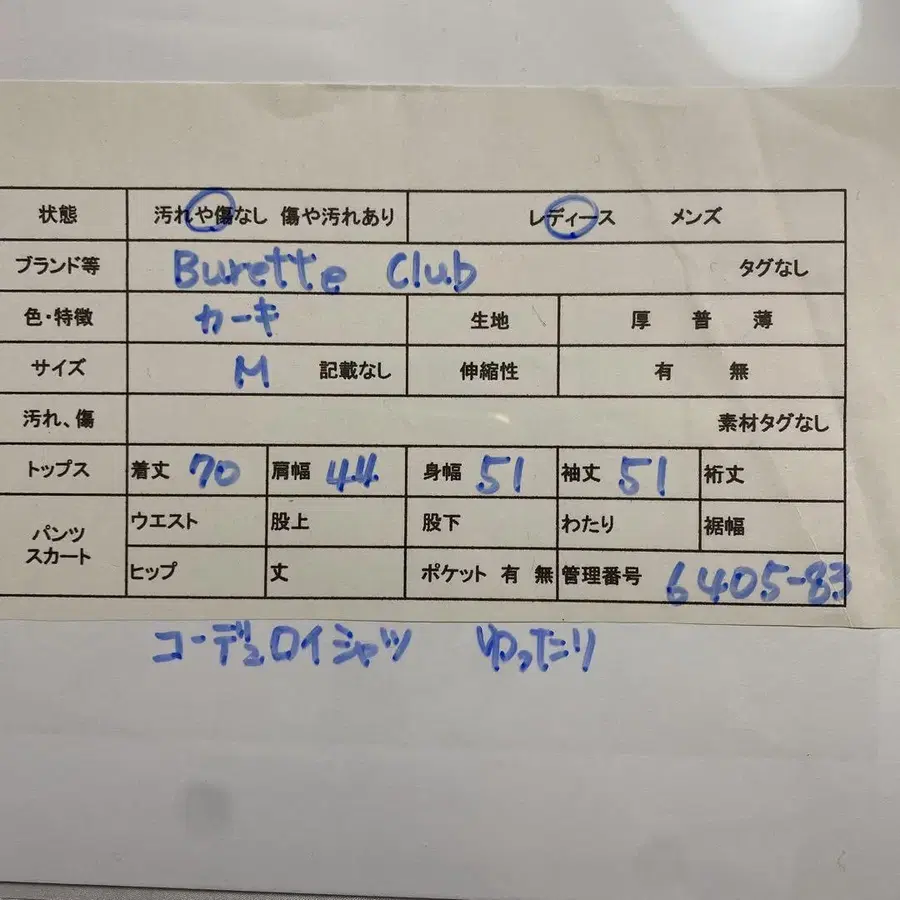 状態 汚れや傷なし 傷や汚れあり レディース メンズ
ブランド等 Burette Club タグなし
色・特徴 カーキ 生地 厚 普 薄
サイズ M 記載なし 伸縮性 有 無
汚れ、傷 素材タグなし
トップス 着丈 70 肩幅 44 身幅 51 袖丈 51 裄丈
パンツ スカート ウエスト 股上 股下 わたり 裾幅
ヒップ 丈 ポケット 有 無 管理番号 6405-83
コーデュロイシャツ ゆったり